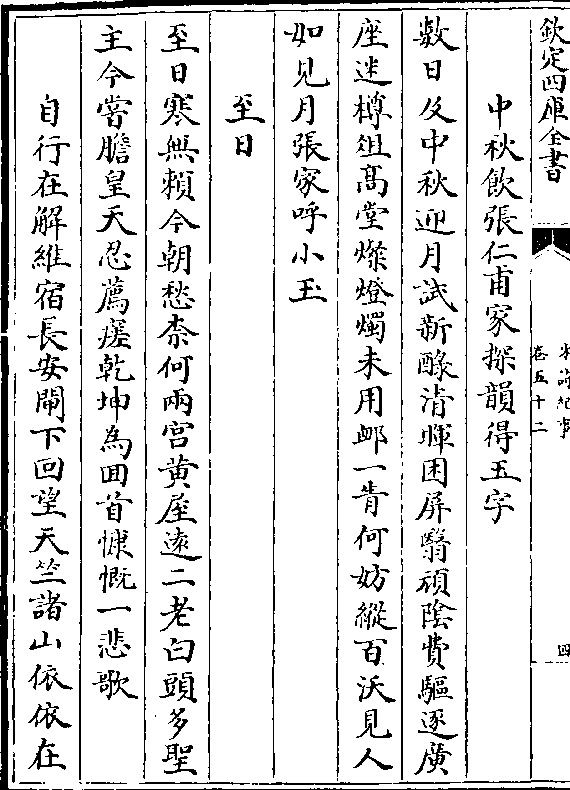 欽定四庫全書
宋詩紀事
卷五十二
四
中秋飲張仁甫家探韻得玉字
數日及中秋迎月試新醁清暉困屏翳頑陰費驅逐廣
座迷樽俎高堂燦燈燭未用䘏一眚何妨縱百沃見人
如見月張家呼小玉
至日
至日寒無賴今朝愁柰何兩宫黄屋逺二老白頭多聖
主今嘗膽皇天忍薦瘥乾坤為囬首慷慨一悲歌
自行在解維宿長安閘下回望天竺諸山依依在